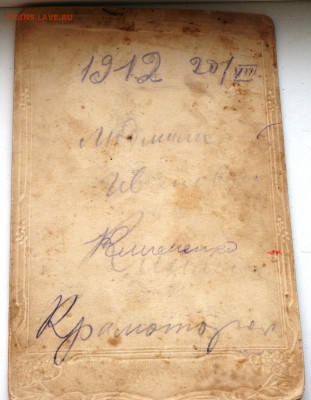 COINS.LAVE.RU
1912 20/VIII
Людмила
Клименко
Краматорск